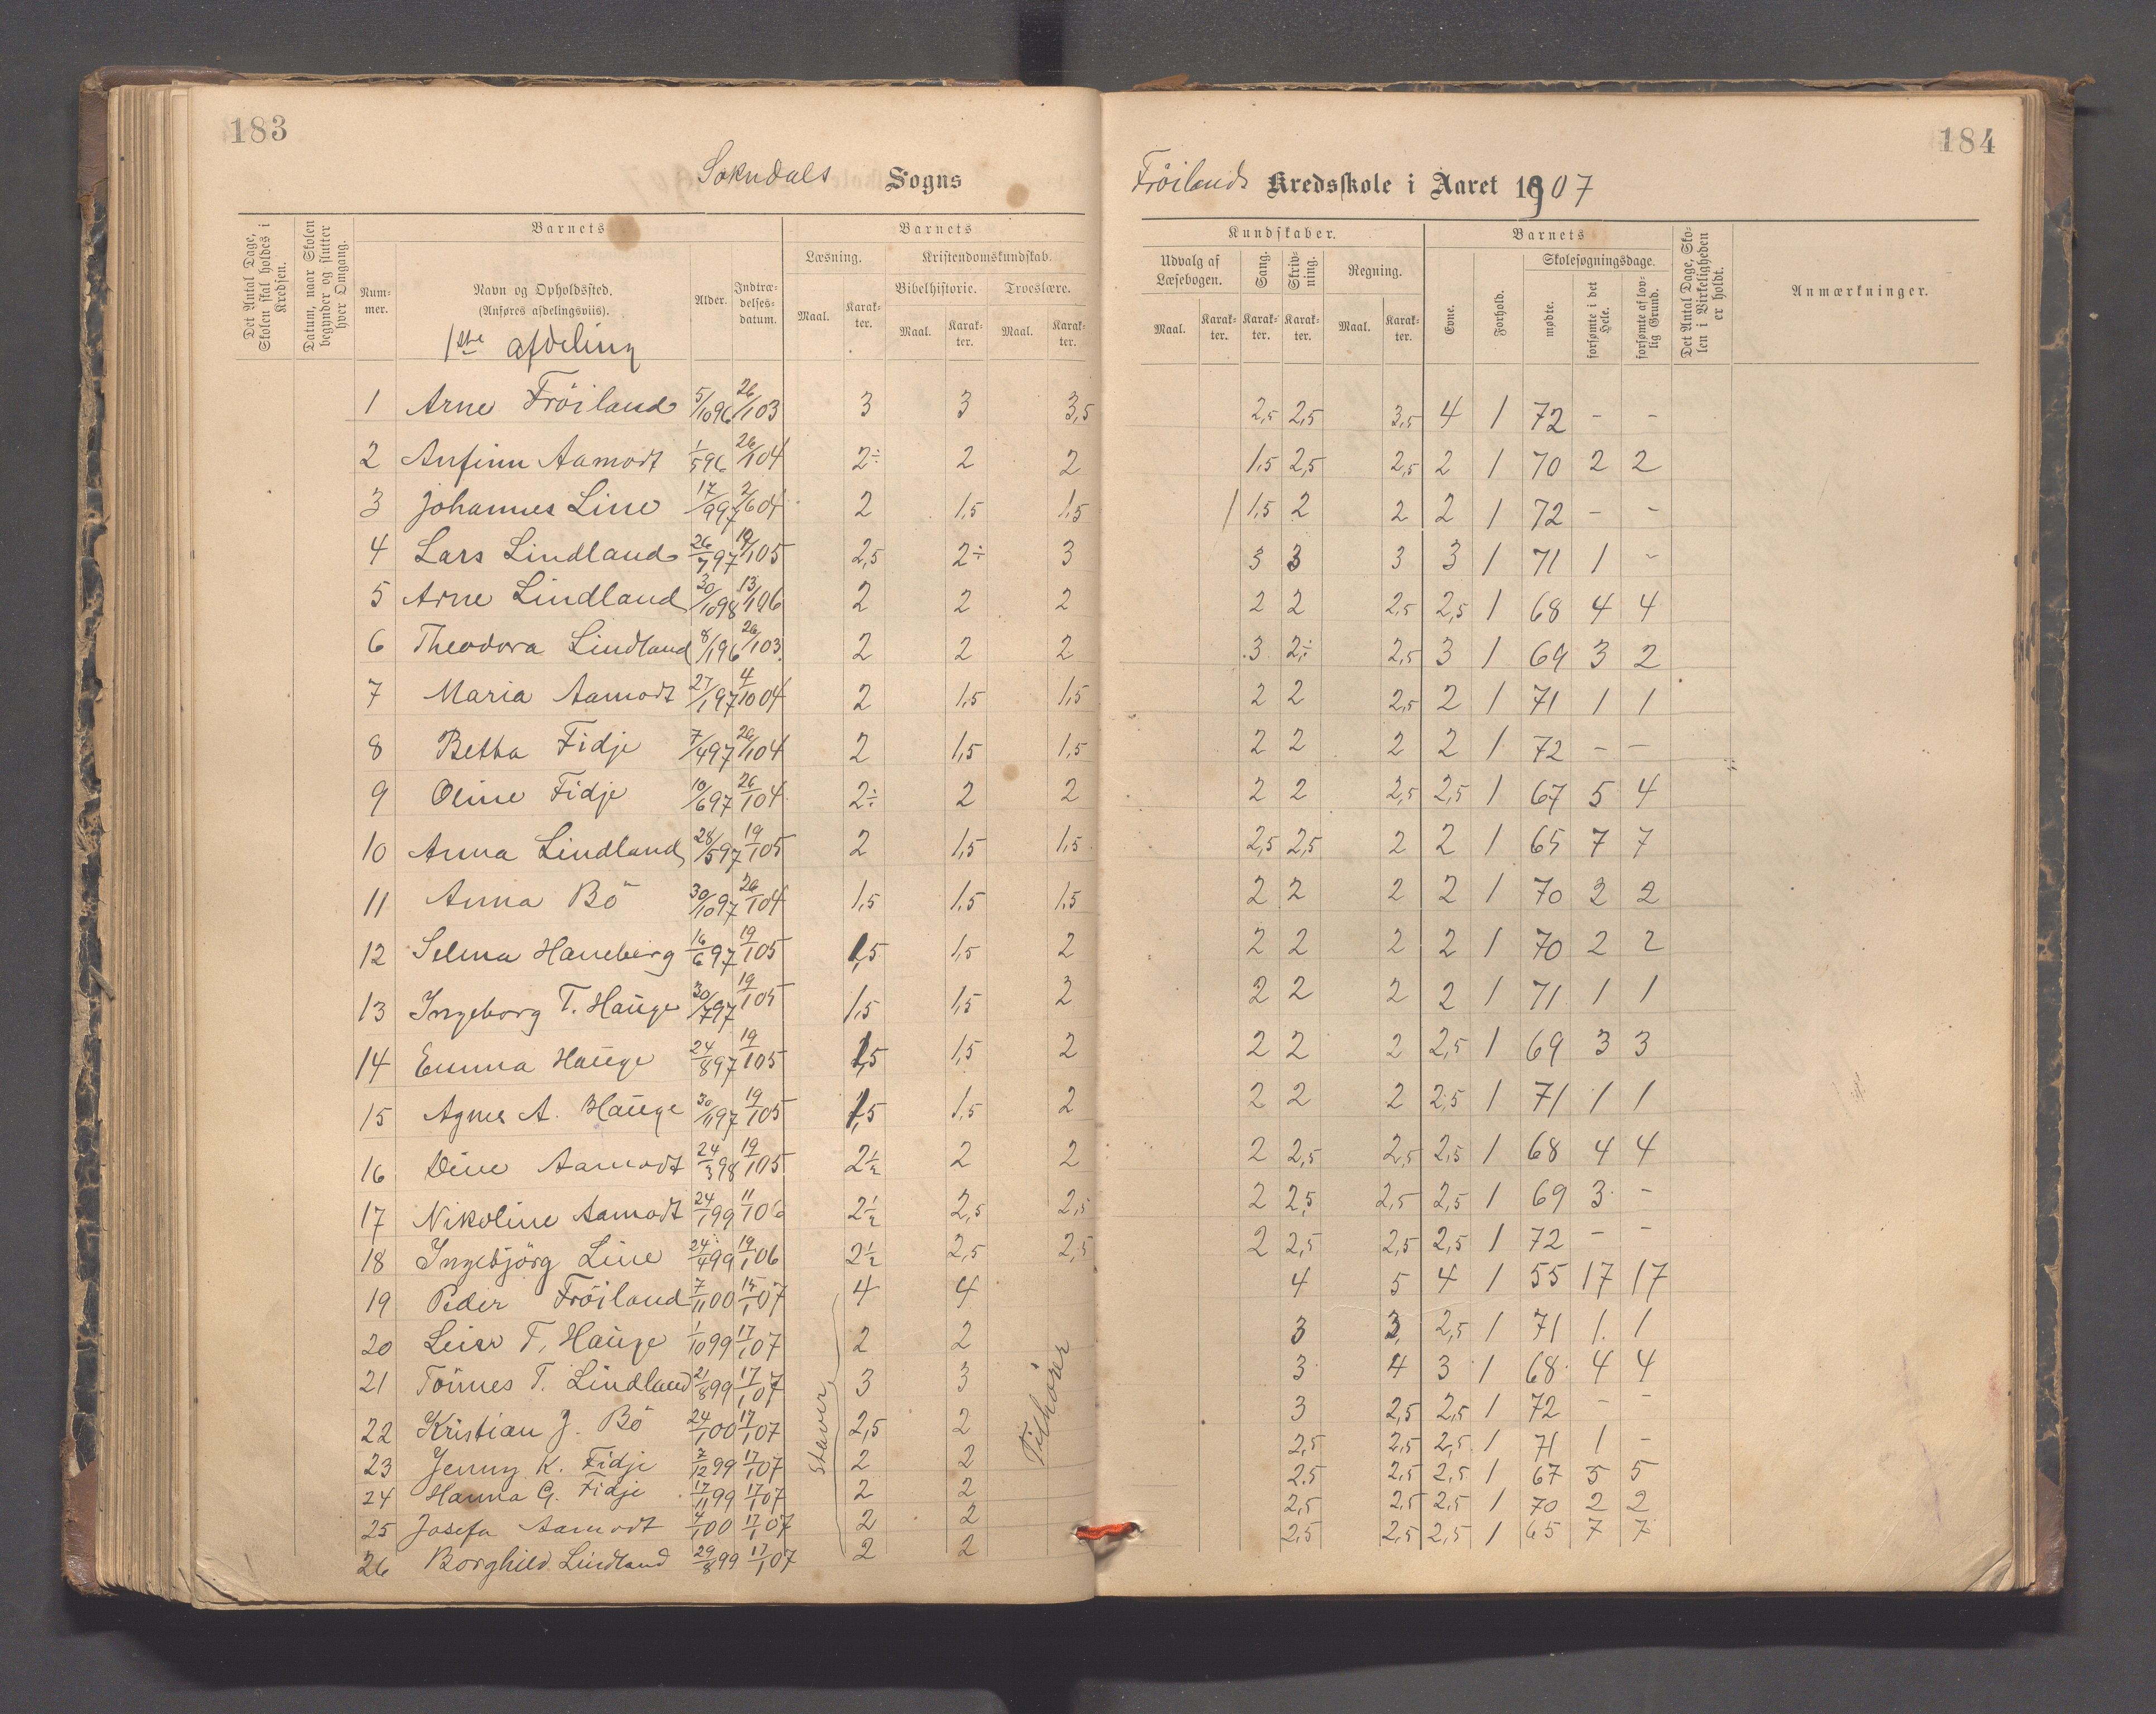 183
184
Sokndals Sogns
Fröilands Kredsskole i Aaret 1907
Det Antal Dage, Skolen skal holdes i Kredsen.
Datum, naar Skolen begynder og slutter hver Omgang.
Barnets
Nummer.
Navn og Opholdssted. (Anføres afdelingsviis).
Alder.
Indtrædelsesdatum.
Barnets
Læsning.
Kristendomskundskab.
Bibelhistorie.
Troeslære.
Maal. Karakter. Maal. Karakter. Maal. Karakter.
Kundskaber.
Udvalg af Læsebogen.
Sang.
Skrivning.
Regning.
Maal. Karakter. Karakter. Karakter. Maal. Karakter.
Barnets
Evne.
Forhold.
Skolesøgningsdage.
mødte.
forsømte i det Hele.
forsømte af lovlig Grund.
Det Antal Dage, Skolen i Virkeligheden er holdt.
Anmærkninger.
1ste afdeling
1 Arne Fröiland 5/10 96 26/1 03 3 3 3,5 2,5 2,5 3,5 4 1 72 - -
2 Anfinn Aamodt 1/5 96 26/1 04 2÷ 2 2 1,5 2,5 2,5 2 1 70 2 2
3 Johannes Line 17/9 97 2/6 04 2 1,5 1,5 1 1,5 2 2 2 1 72 - -
4 Lars Lindland 26/7 97 19/1 05 2,5 2÷ 3 3 3 3 3 1 71 1 -
5 Arne Lindland 30/10 98 13/1 06 2 2 2 2 2 2,5 2,5 1 68 4 4
6 Theodora Lindland 8/1 96 26/1 03 2 2 2 3 2÷ 2,5 3 1 69 3 2
7 Maria Aamodt 27/1 97 4/10 04 2 1,5 1,5 2 2 2,5 2 1 71 1 1
8 Betha Fidje 7/4 97 26/1 04 2 1,5 1,5 2 2 2 2 1 72 - -
9 Oline Fidje 10/6 97 26/1 04 2÷ 2 2 2 2 2,5 2,5 1 67 5 4
10 Anna Lindland 28/5 97 19/1 05 2 1,5 1,5 2,5 2,5 2 2 1 65 7 7
11 Anna Bö 30/10 97 26/1 04 1,5 1,5 1,5 2 2 2 2 1 70 2 2
12 Selma Haneberg 16/6 97 19/1 05 1,5 1,5 2 2 2 2 2 1 70 2 2
13 Ingeborg T. Hauge 30/7 97 19/1 05 1,5 1,5 2 2 2 2 2 1 71 1 1
14 Emma Hauge 24/8 97 19/1 05 1,5 1,5 2 2 2 2 2,5 1 69 3 3
15 Agnes A. Hauge 30/11 97 19/1 05 1,5 1,5 2 2 2 2 2,5 1 71 1 1
16 Dine Aamodt 24/3 98 19/1 05 2½ 2 2 2 2,5 2,5 2,5 1 68 4 4
17 Nikoline Aamodt 24/1 99 11/1 06 2½ 2,5 2,5 2 2,5 2,5 2,5 1 69 3 -
18 Ingebjörg Line 24/4 99 19/1 06 2½ 2,5 2,5 2 2,5 2,5 2,5 1 72 - -
19 Peder Fröiland 7/11 00 15/1 07 4 4 4 5 4 1 55 17 17
20 Leisr T. Hauge 1/10 99 17/1 07 2 2 3 3 2,5 1 71 1 1
21 Tönnes T. Lindland 21/8 99 17/1 07 3 3 3 4 3 1 68 4 4
22 Kristian J. Bö 24/1 00 17/1 07 2,5 2 3 2,5 2,5 1 72 - -
23 Jenny K. Fidje 2/12 99 17/1 07 2 2 2,5 2,5 2,5 1 71 1 -
24 Hanna G. Fidje 17/11 99 17/1 07 2 2 2,5 2,5 2,5 1 67 5 5
25 Josefa Aamodt 4/1 00 17/1 07 2 2 2,5 2,5 2,5 1 70 2 2
26 Borghild Lindland 29/8 99 17/1 07 2 2 2,5 2,5 2,5 1 65 7 7
Staver
Tilhörer